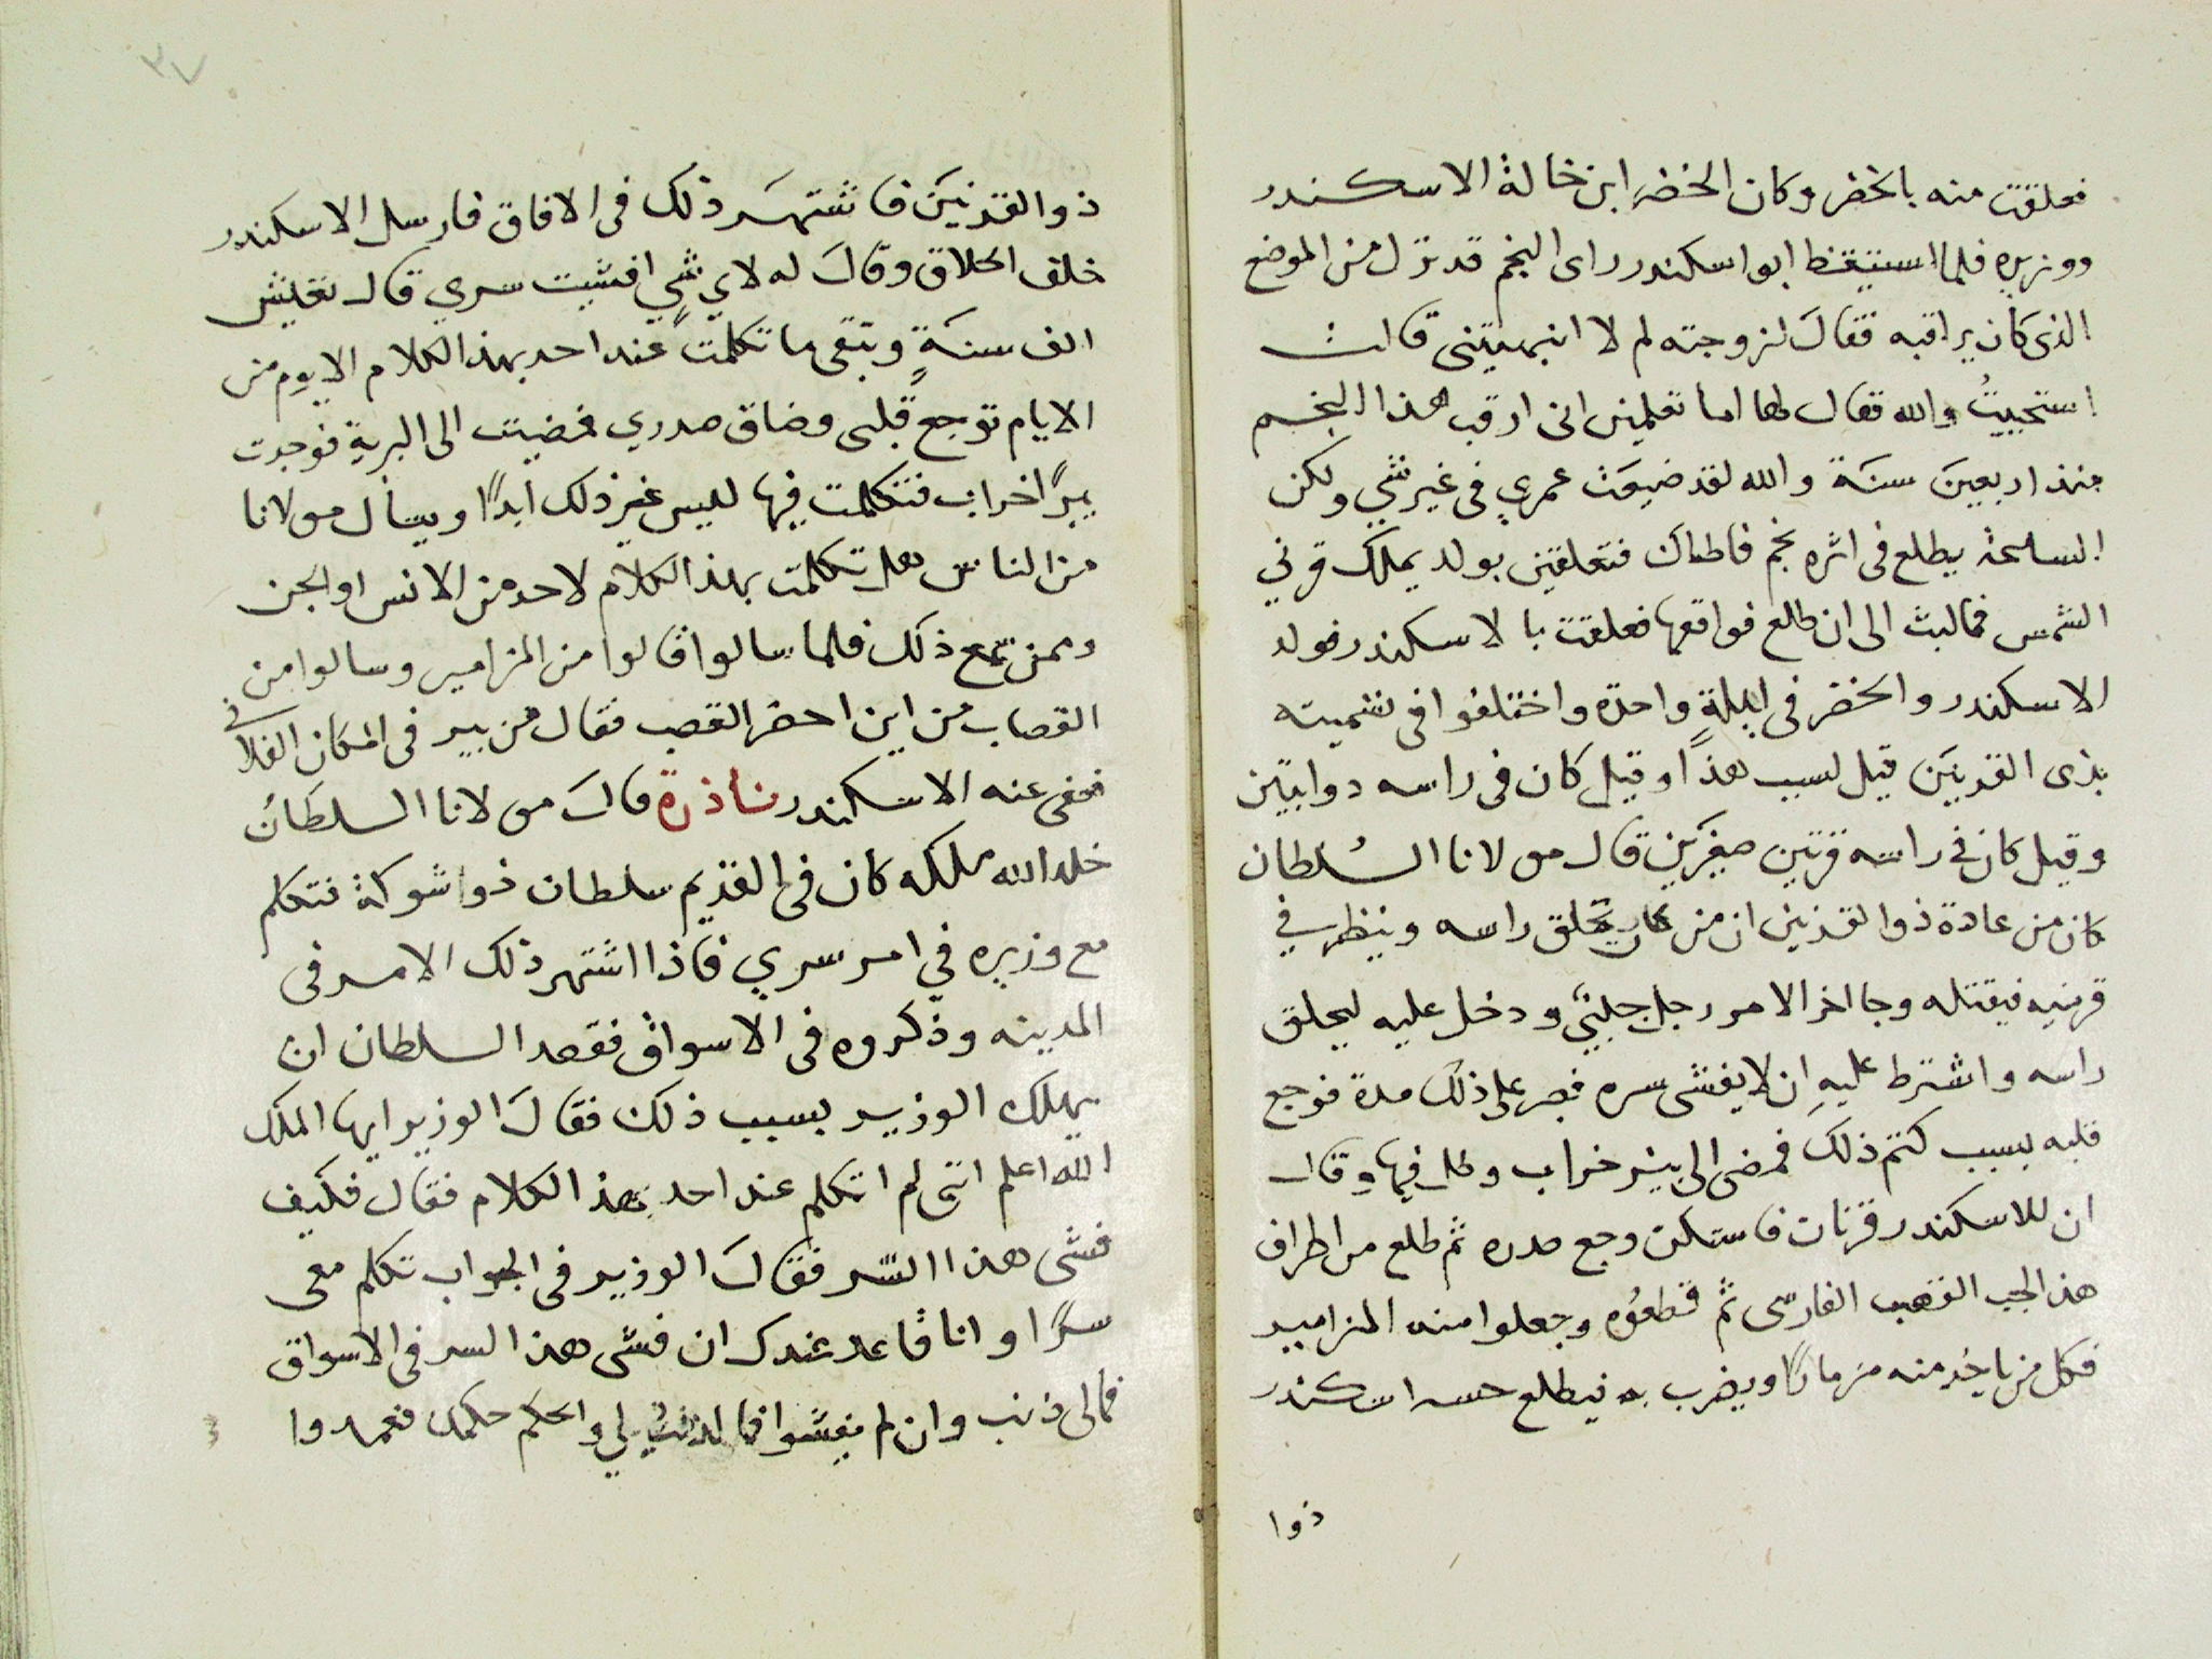 فعلقت منه بالخضر وكان الخضر ابن خالة الاسكندر
ووزيره فلما استيقظ ابو اسكندر راى النجم قد نزل من الموضع
الذى كان يراقبه فقال لزوجته لم لا انبهتينى قالت
استحييت والله فقال لها اما تعلمين انى ارقب هذا النجم
منذ اربعين سنة والله لقد ضيعت عمري فى غير شي ولكن
الساعة يطلع فى اثره نجم فاطاك فتعلقين بولد يملك قرني
الشمس فما لبث الى ان طلع فواقعها فعلقت بالاسكندر فولد
الاسكندر والخضر فى ليلة واحدة واختلفوا فى تسميته
بذى القرنين قيل لسبب هذا وقيل كان فى راسه دوابتين
وقيل كان في راسه قرنين صغيرين قال مولانا السلطان
كان من عادة ذو القرنين ان من كان يحلق راسه وينظر في
قرنيه فيقتله وجا اخر الامر رجل جلبي ودخل عليه ليحلق
راسه واشترط عليه ان لا يفشى سره فصبر على ذلك مدة فوجع
قلبه بسبب كتم ذلك فمضى الى بير خراب وطل فيها وقال
ان للاسكندر قرنان فاستكن وجع صدره ثم طلع من اطراف
هذا الجب القصب الفارسى ثم قطعوه وجعلوا منه المزامير
فكل من ياخد منه مزمارا ويضرب به فيطلع حسه اسكندر
ذوا
٣٧
ذو القرنين فاشتهر ذلك فى الافاق فارسل الاسكندر
خلف الحلاق وقال له لاي شي افشيت سري قال تعيش
الف سنة وتبقى ما تكلمت عند احد بهذا الكلام الا يوم من
الايام توجع قلبى وضاق صدري فمضيت الى البرية فوجدت
بيرا خراب فتكلمت فيها ليس غير ذلك ابدا ويسأل مولانا
من الناس هل تكلمت بهذا الكلام لاحد من الانس او الجن
وممن سمع ذلك فلما سالوا قالوا من المزامير وسالوا من
القصاب من اين احضر القصب فقال من بير فى المكان الفلانى
فعفى عنه الاسكندر نادرة قال مولانا السلطان
خلد الله ملكه كان فى القديم سلطان ذو شوكة فتكلم
مع وزيره في امر سري فاذا اشتهر ذلك الامر فى
المدينه وذكروه فى الاسواق فقصد السلطان ان
يهلك الوزير بسبب ذلك فقال الوزير ايها الملك
الله اعلم انى لم اتكلم عند احد بهذا الكلام فقال فكيف
فشى هذا السر فقال الوزير فى الجواب تكلم معى
سرا وانا قاعد عندك ان فشى هذا السر فى الاسواق
فما لى ذنب وان لم يفشوا فالذنب لي والحكم حكمك فعمدوا